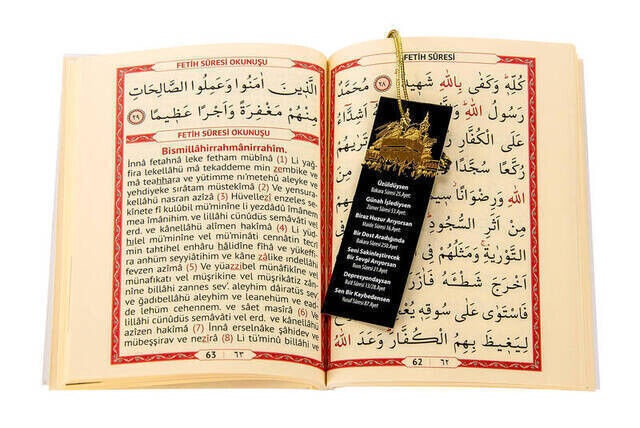 FETİH SÛRESİ
كُلِّهٖ وَكَفٰى بِاللّٰهِ شَهٖيدًا ﴿٢٨﴾ مُحَمَّدٌ
رَسُولُ اللّٰهِ اَشِدَّٓاءُ
عَلَى الْكُفَّارِ
رُكَّعًا سُجَّدًا
اللّٰهِ وَرِضْوَانًا
مِنْ اَثَرِ السُّجُودِ
التَّوْرٰيةِ وَمَثَلُهُمْ
اَخْرَجَ شَطْـَٔهُ
فَاسْتَوٰى عَلٰى سُوقِهٖ
لِيَغٖيظَ بِهِمُ الْكُفَّارَ وَعَدَ اللّٰهُ
62 ٦٢
Üzüldüysen
Bakara Sûresi 25.Ayet
Günah İşlediysen
Zümer Sûresi 53.Ayet
Biraz Huzur Arıyorsan
Maide Sûresi 16.Ayet
Bir Dost Aradığında
Bakara Sûresi 250.Ayet
Seni Sakinleştirecek
Bir Sevgi Arıyorsan
Rum Sûresi 21.Ayet
Depresyondaysan
Ra'd Sûresi 13/28.Ayet
Sen Bir Kaybedensen
Yusuf Sûresi 87.Ayet
FETİH SÛRESİ OKUNUŞU
الَّذٖينَ اٰمَنُوا وَعَمِلُوا الصَّالِحَاتِ
مِنْهُمْ مَغْفِرَةً وَاَجْرًا عَظٖيمًا ﴿٢٩﴾
FETİH SÛRESİ OKUNUŞU
Bismillâhirrahmânirrahîm.
İnnâ fetahnâ leke fetham mübînâ (1) Li yağ-
fira lekellâhü mâ tekaddeme min zembike ve
mâ teahhara ve yütimme ni'metehû aleyke ve
yehdiyeke sırâtam müstekîmâ (2) Ve yensura-
kellâhü nasran azîzâ (3) Hüvellezî enzeles se-
kînete fî kulûbil mü'minîne li yezdâdû îmânem
mea îmânihim. ve lillâhi cünûdüs semâvâti vel
erd. ve kânellâhü alîmen hakîmâ (4) Li yüd-
hılel mü'minîne vel mü'minâti cennâtin tecrî
min tahtihel enhâru hâlidîne fîhâ ve yükeffi-
ra anhüm seyyiâtihim ve kâne zâlike ındellâhi
fevzen azîmâ (5) Ve yüazzibel münâfikîne vel
münâfikati vel müşrikîne vel müşrikâtiz zân-
nîne billâhi zannes sev'. aleyhim dâiratüs sev'
ve ğadıbellâhü aleyhim ve leanehüm ve ead-
de lehüm cehennem. ve sâet masîrâ (6) Ve
lillâhi cünûdüs semâvâti vel erd. ve kânellâhü
azîzen hakîmâ (7) İnnâ erselnâke şâhidev ve
mübeşşirav ve nezîrâ (8) Li tü'minû billâhi ve
63 ٦٣